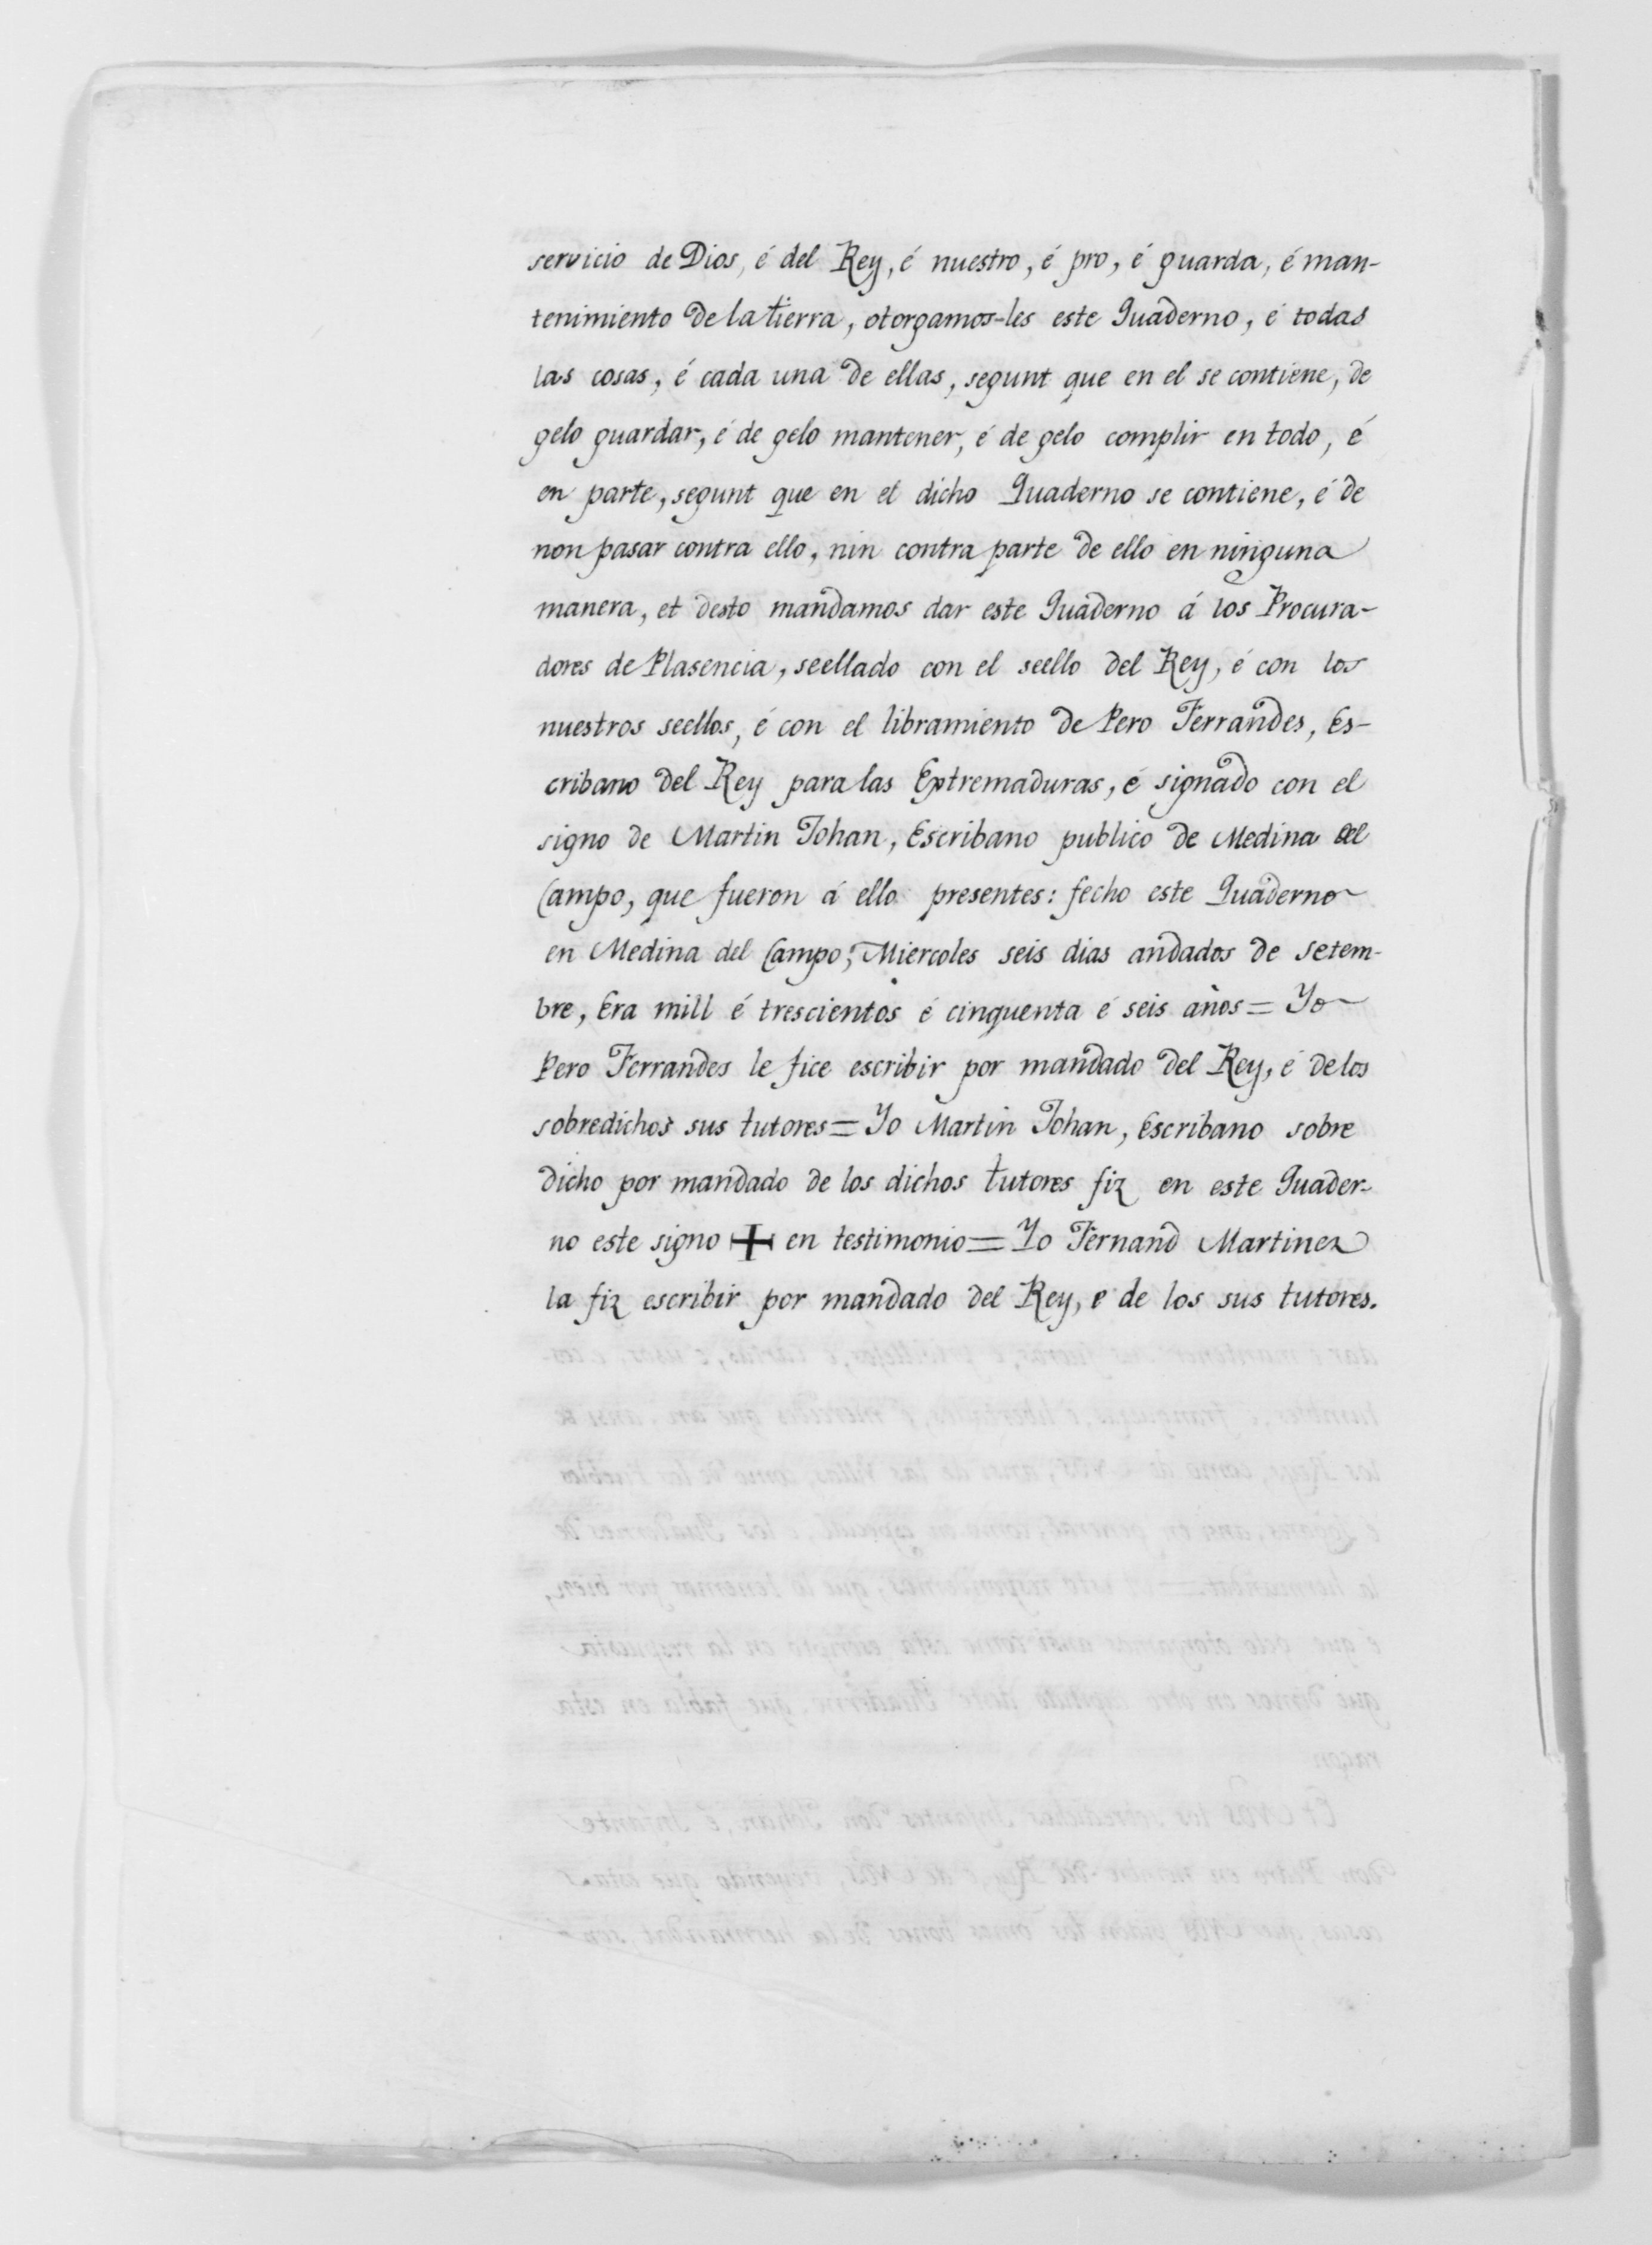 servicio de Dios, é del Rey, é nuestro, é pro, é guarda, é man-
tenimiento de la tierra, otorgamos-les este Quaderno, é todas
las cosas, é cada una de ellas, segunt que en el se contiene, de
gelo guardar, é de gelo mantener, é de gelo complir en todo, é
en parte, segunt que en el dicho Quaderno se contiene, é de
non pasar contra ello, nin contra parte de ello en ninguna
manera, et desto mandamos dar este Quaderno á los Procura-
dores de Plasencia, seellado con el seello del Rey, é con los
nuestros seellos, é con el libramiento de Pero Ferrandes, Es-
cribano del Rey para las Extremaduras, é signado con el
signo de Martin Johan, Escribano publico de Medina del
Campo, que fueron á ello presentes: fecho este Quaderno
en Medina del Campo, Miercoles seis dias andados de setem-
bre, Era mill é trescientos é cinquenta é seis años = Yo
Pero Ferrandes le fice escribir por mandado del Rey, é de los
sobredichos sus tutores = Yo Martin Johan, Escribano sobre
dicho por mandado de los dichos tutores fiz en este Quader-
no este signo ✠ en testimonio = Yo Fernand Martinez
la fiz escribir por mandado del Rey, e de los sus tutores.